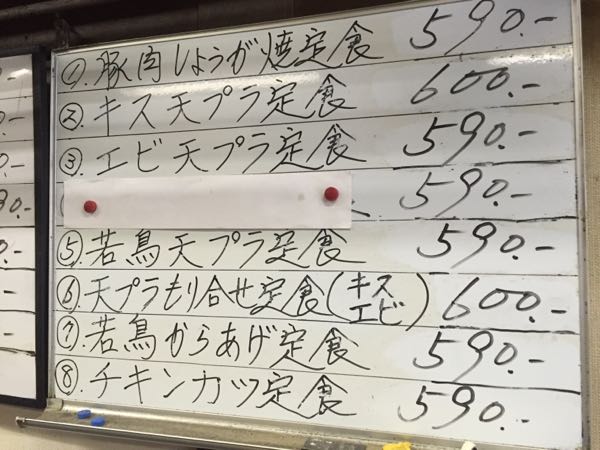 ①. 豚肉しょうが焼定食 590.-
②. キス天プラ定食 600.-
③. エビ天プラ定食 590.-
590.-
⑤. 若鳥天プラ定食 590.-
⑥. 天プラもり合せ定食(キスエビ) 600.-
⑦. 若鳥からあげ定食 590.-
⑧. チキンカツ定食 590.-